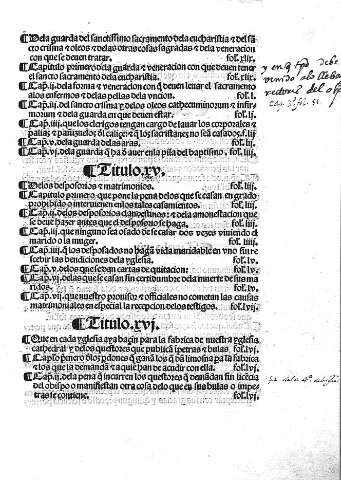 ¶ De la guarda del santissimo sacramento dela eucharistia & del sãcto crisma & oleos & delas otras cosas sagradas & dela veneracion
con que se deuen tratar. fol.xlix.
¶ Capitulo primero de la guarda & veneracion con que deuen tener
el sancto sacramento dela eucharistia. fol.xlix.
¶ Cap.ij. dela forma & veneracion con q̃ deuen leuar el sacramento
alos enfermos & delas pellas dela vncion. fol.l.
¶ Cap.iij. del sancto crisma y delos oleos cathecuminorum & infirmorum
& dela guarda en que deuen estar. fol.lj.
¶ Cap.iiij. que los clerigos tengan cargo de lauar los corporales &
palias & pañizuelos
¶ Cap.v. de la guarda delas aras. fol.lj.
¶ Cap.vj. dela guarda q̃ ha d̃ auer en la pila del baptismo. fol.lij.
¶ Titulo.xv.
¶ Delos desposorios & matrimonios. fol.lij.
¶ Capitulo primero. que pone la pena delos que se casan en grado
prohibido & interuienen en los tales casamientos. fol.lij.
¶ Cap.ij. delos desposorios clandestinos: & dela amonestacion que
se deue hazer antes que el desposorio se haga. fol.liij.
¶ Cap.iij. que ninguno sea osado de casar dos vezes viuiendo el
marido o la muger. fol.liiij.
¶ Cap.iiij. q̃ los desposados no hagã vida maridable en vno sin recebir
las bendiciones dela yglesia. fol.lv.
¶ Cap.v. delos que se dan cartas de quitacion: fol.lv.
¶ Cap.vj. delas que se casan sin certidumbre dela muerte de sus maridos.
fol.lv.
¶ Cap.vij. que nuestro prouisor & officiales no cometan las causas
matrimoniales en especial la recepcion delos testigos. fol.lvj.
¶ Titulo.xvj.
¶ Que en cada yglesia aya bacin para la fabrica de nuestra yglesia
cathedral y delos questores que publicã ĩpetras & bulas fol.lvj.
¶ Capľo p̃mero
los que la demandã & a quien han de acudir con ella. fol.lvj.
¶ Cap.ij. dela pena q̃ incurren los questores q̃ demãdan sin licẽcia
del obispo o manifiestan otra cosa delo que en sus bulas o impetras
se contiene. fol.lvj.